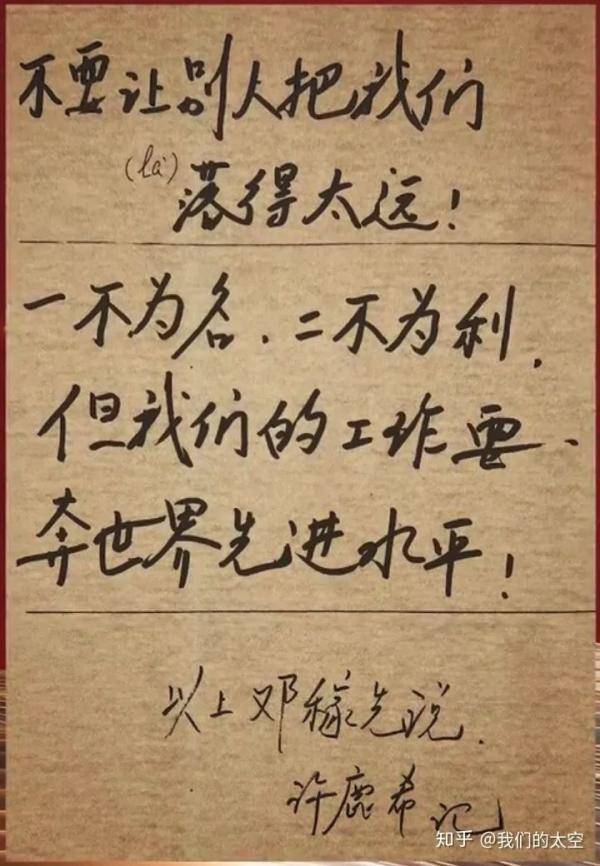 不要让别人把我们
(là)
落得太远！
一不为名、二不为利，
但我们的工作要、
奔世界先进水平！
以上邓稼先说．
许鹿希记
知乎 @我们的太空